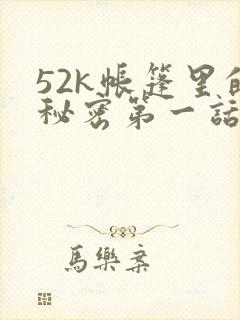 52k帳篷里的
秘密第一話
馬樂案